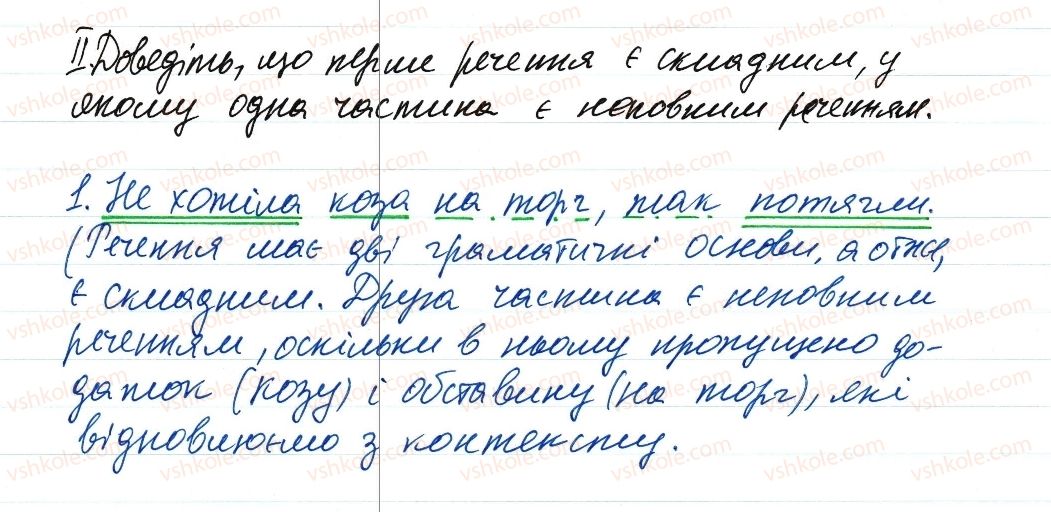 ІІ. Доведіть, що перше речення є складним, у
якому одна частина є неповним реченням.
1. Не хотіла коза на торг, так потягли.
(Речення має дві граматичні основи, а отже,
є складним. Друга частина є неповним
реченням, оскільки в ньому пропущено до-
даток (козу) і обставину (на торг), які
відновлюємо з контексту.